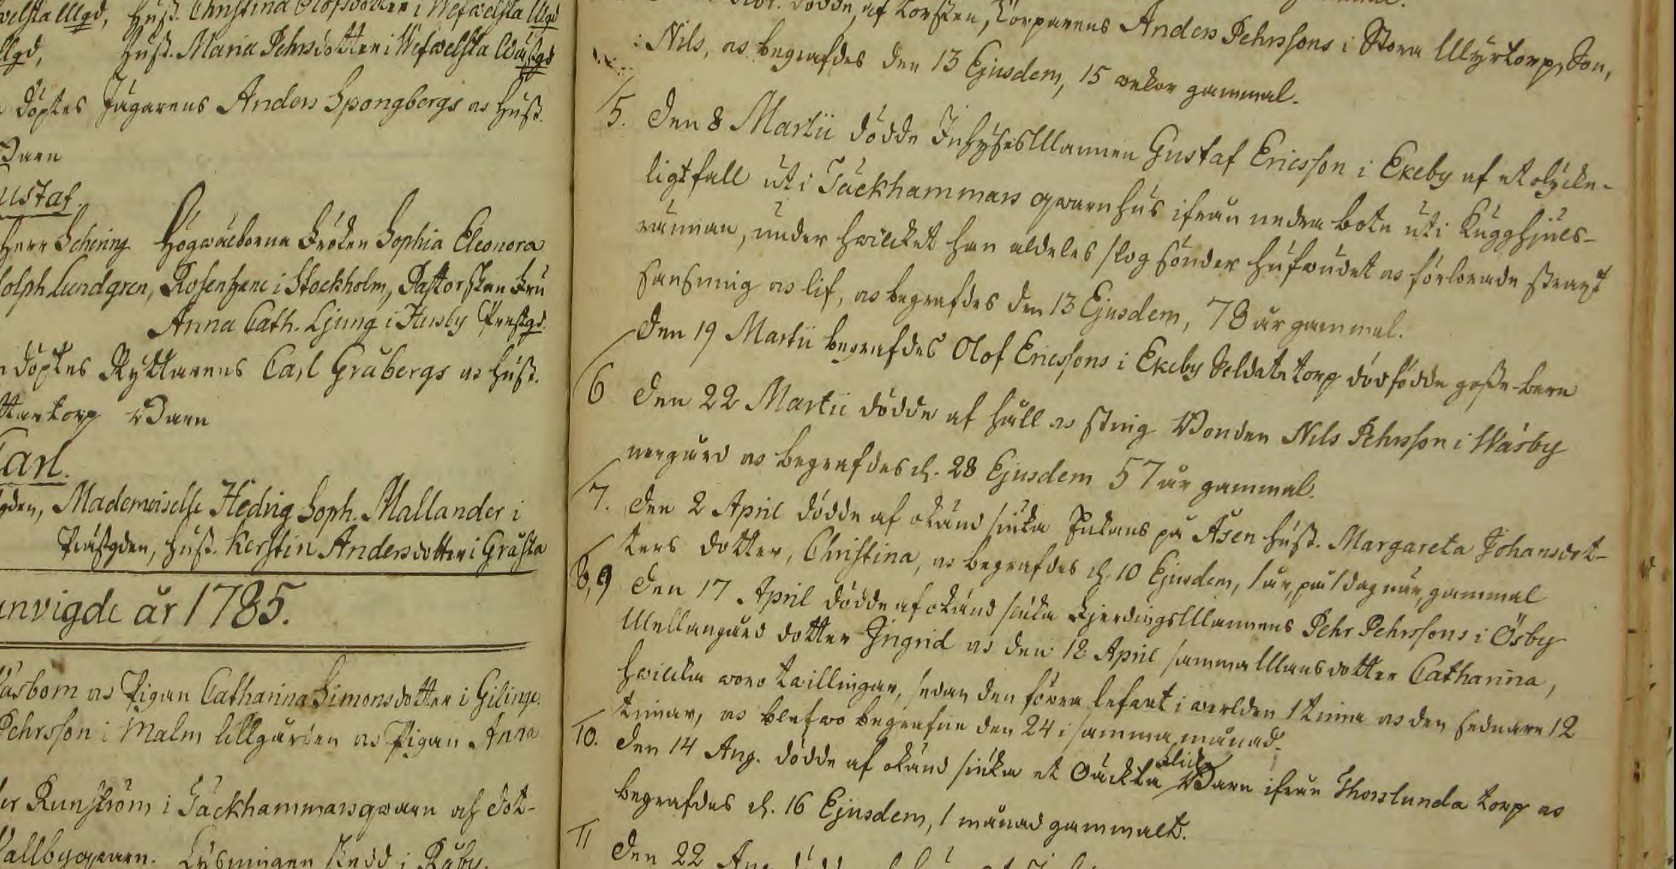 Huß. Christina Olofsdotter i Wefwelsta Mgd
Huß. Maria Pehrsdotter i Wefwelsta
döptes Jägarens Anders Spongbergs os Huß.
Barn
ustaf.
Herr Schering Högwälborna Fröken Sophia Eleonora
olph Lundgren, Rosenhane i Stockholm, Pastorskan Fru
Anna Cath. Ljung i Husby Prestgd.
döptes Ryttarens Carl Grabergs os Huß.
ttartorp Barn
Carl.
gden, Mademoiselle Hedvig Soph. Mallander i
Prästgden, Huß. Kerstin Andersdotter i Gråsta
envigde år 1785.
åsbom os Pigan Catharina Simonsdotter i Gilinge.
Pehrsson i Malm lillgården os Pigan Anna
er Runström i Täckhammarsqwarn os Dot-
allbyqwarn. Lysningen skedd i Råby.
dödde, af Torsken, Torparens Anders Pehrssons i Stora Myrtorp, Son,
Nils, os begrafdes den 13 Ejusdem, 15 wekor gammal.
5. Den 8 Martii dödde InhysesMannen Gustaf Ericsson i Ekeby af et olycke-
ligt fall uti Täckhammars qwarnhus ifrån nedra botn uti Kugghjuls-
rännan, under hwilcket han aldeles slog sönder hufwudet os förlorade strax
sansning os lif, os begrafdes den 13 Ejusdem, 78 år gammal.
Den 19 Martii begrafdes Olof Ericssons i Ekeby Soldatetorp dödfödde goße-barn
6 Den 22 Martii dödde af håll os sting Bonden Nils Pehrsson i Wäsby
norgård os begrafdes d. 28 Ejusdem 57 år gammal.
7. Den 2 April dödde af okänd siuka Enkans på Åsen Huß. Margareta Johansdot-
ters dotter, Christina, os begrafdes d. 10 Ejusdem, 1 år, på 1 dag när, gammal
8,9 Den 17 April dödde af okänd siuka FjerdingsMannens Pehr Pehrssons i Ösby
Mellangård dotter Ingrid os den 18 April samma Mans dotter Catharina,
hwilcka woro twillingar, sedan den förra lefwat i werlden 1 tima os den sednare 12
timar, os blefwo begrafne den 24 i samma månad.
10. Den 14 Aug. dödde af okänd siuka et Oäckta Flicke Barn ifrån Thorslunda torp os
begrafdes d. 16 Ejusdem, 1 månad gammalt.
11 Den 22 Aug. dödde